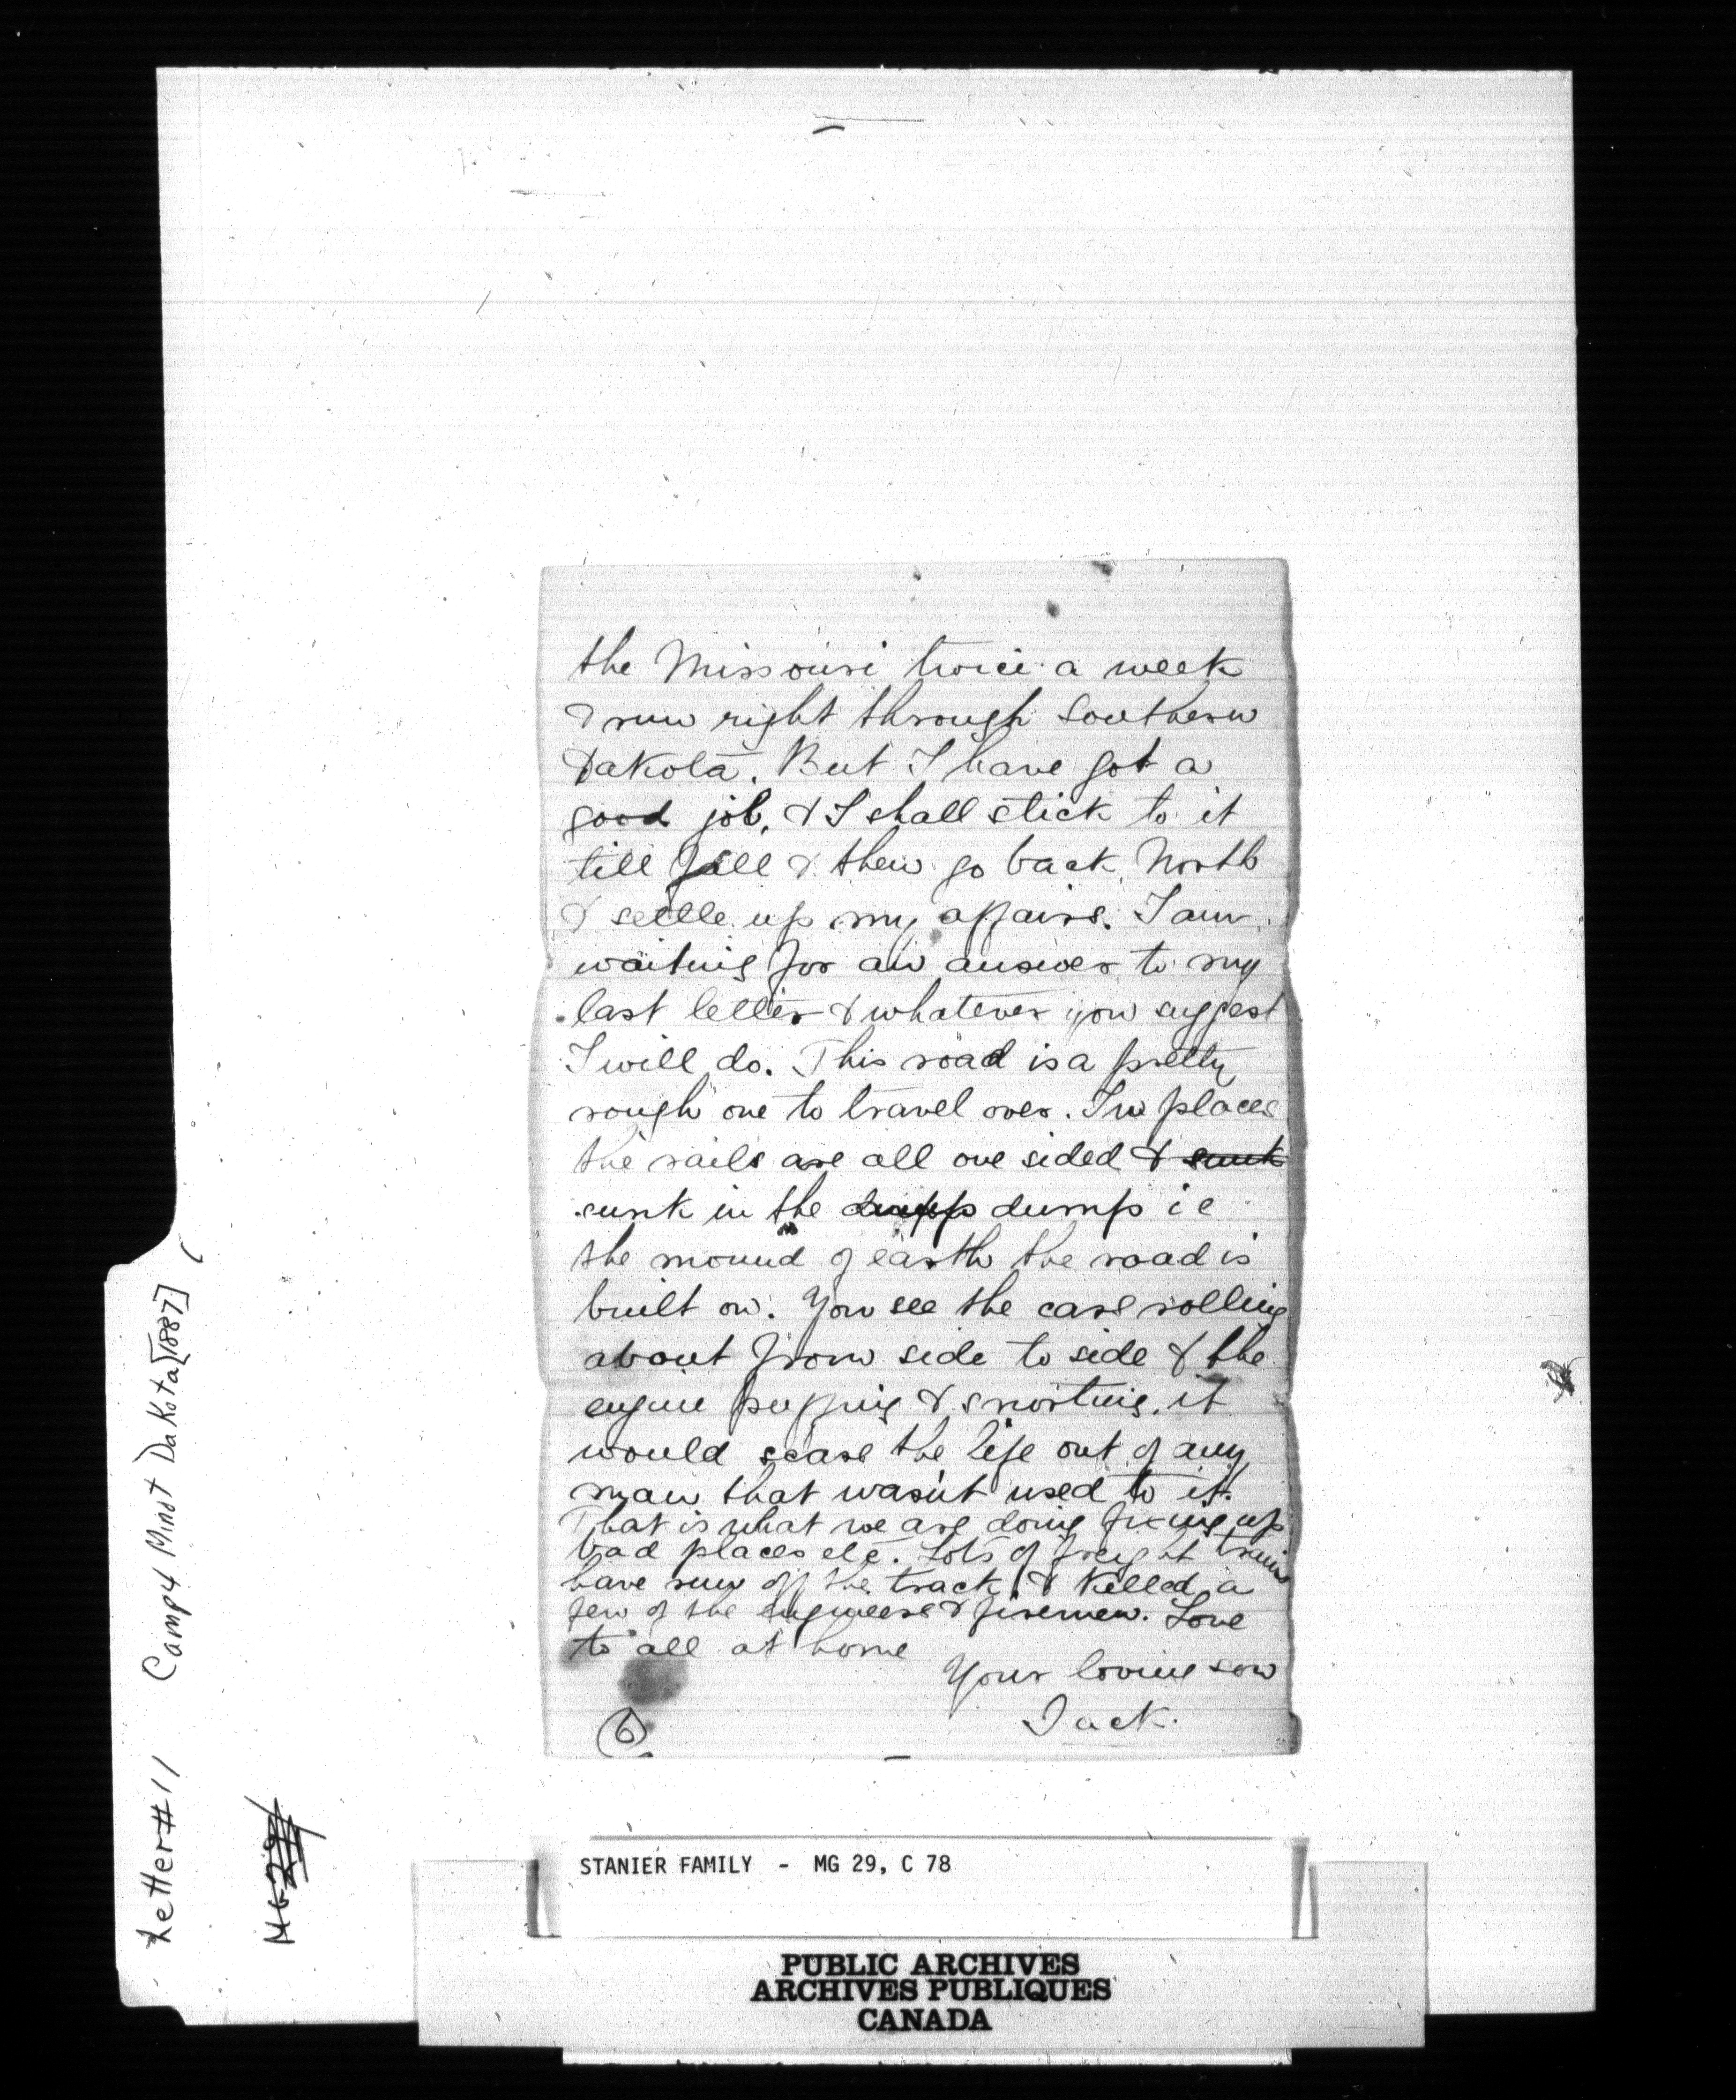 the Missouri twice a week
& run right through Southern
Dakota. But I have got a
good job, & I shall stick to it
till fall & then go back North
& settle up my affairs. I am
waiting for an answer to my
last letter & whatever you suggest
I will do. This road is a pretty
rough one to travel over. In places
the rails are all one sided & sunk
sunk in the dump i e
the mound of earth the road is
built on. You see the cars rolling
about from side to side & the
engine puffing & snorting, it
would scare the life out of any
man that wasn't used to it.
That is what we are doing fixing up
bad places etc. Lots of freight trains
have run off the track & killed a
few of the engineers & firemen. Love
to all at home
Your loving son
Jack.
6
Letter #11 Camp 4 Minot Dakota [1887]
MG 29
STANIER FAMILY - MG 29, C 78
PUBLIC ARCHIVES
ARCHIVES PUBLIQUES
CANADA